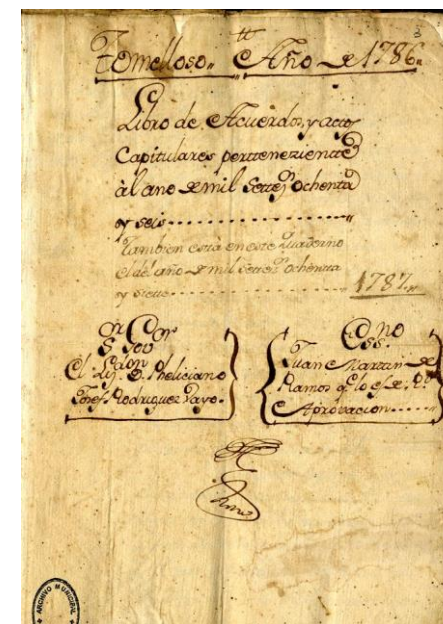 3
tt
Tomelloso.. Año de 1786..
Libro de Acuerdos, y actos
Capitulares perttenezientes
àl año de mil Settezs. Ochentta
y seis
Tambien està en este Quaderno
el del año de mil Settezs. Ochentta
y Siette 1787..
Sr. Gov
El Lizdo. Dn. Pheliciano
Josef Rodriguez Payo.
Essno
Juan Martin de
Ramos qe lo es de Rl
Aprovacion
ARCHIVO MUNICIPAL